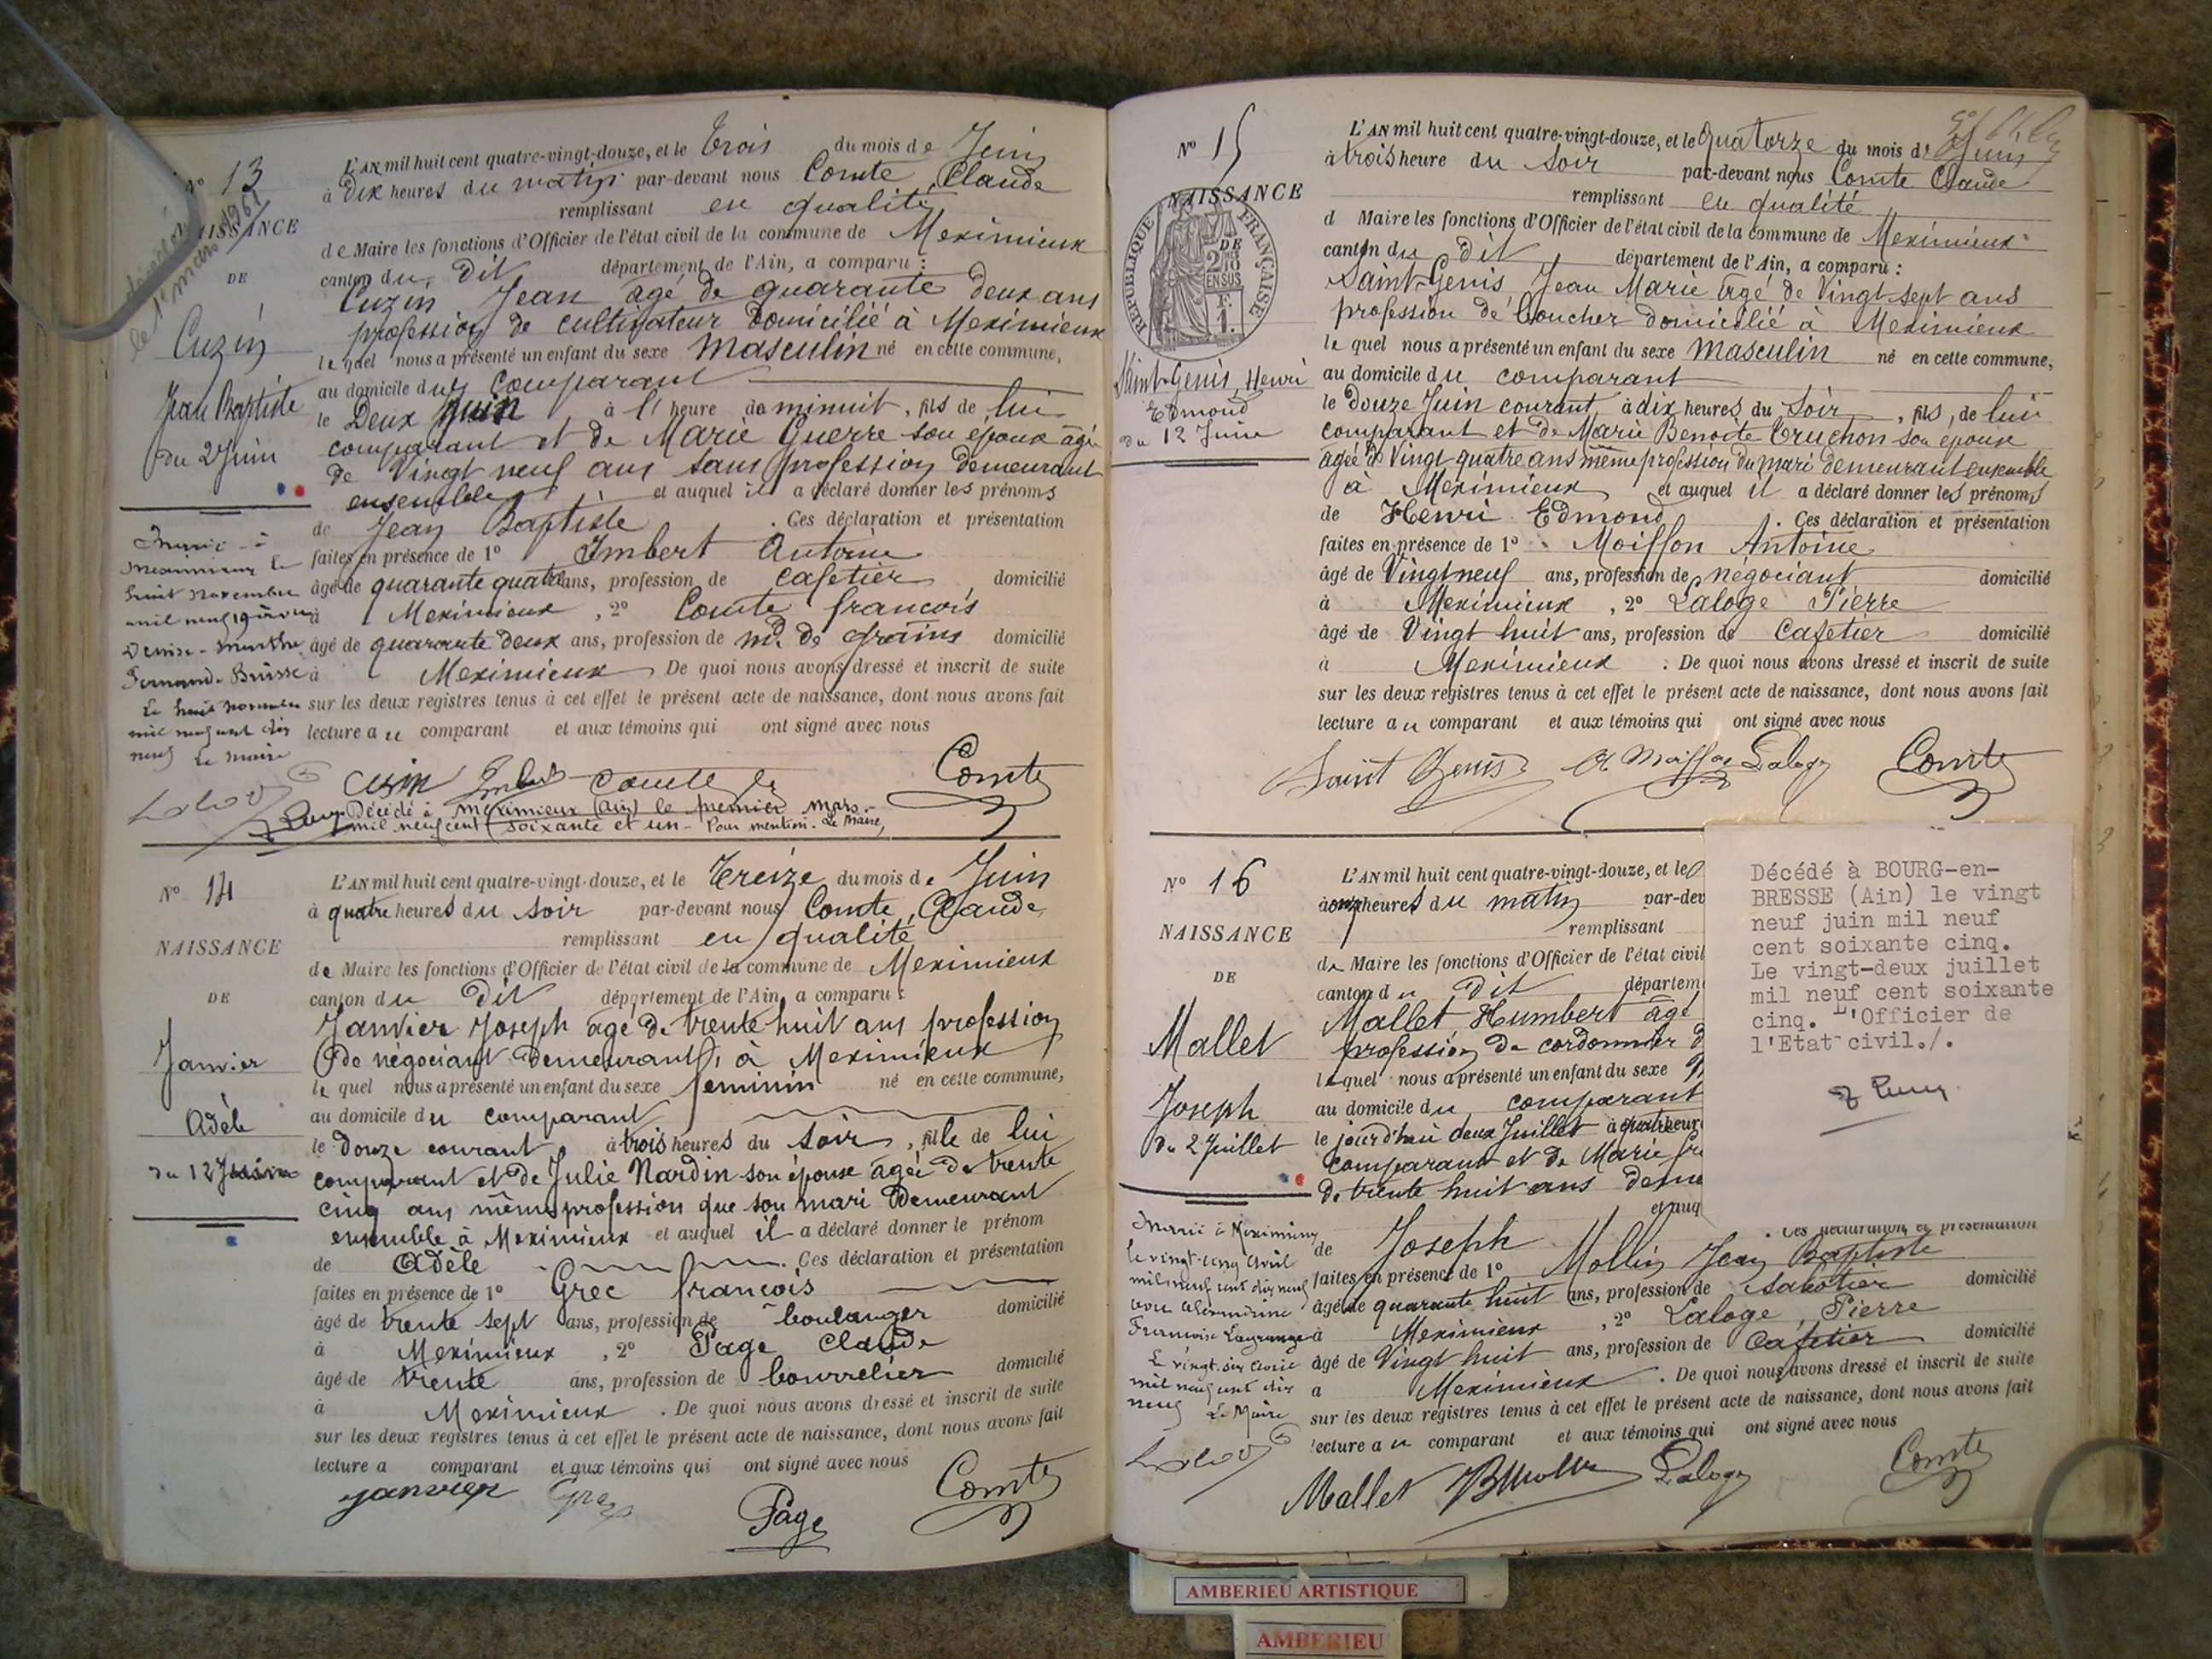 N° 13
NAISSANCE
DE
Cuzin
Jean Baptiste
du 2 Juin
L'AN mil huit cent quatre-vingt-douze, et le trois du mois de Juin
à dix heures du matin par-devant nous Comte Claude
remplissant en qualité
de Maire les fonctions d'Officier de l'état civil de la commune de Meximieux
canton du dit département de l'Ain, a comparu :
Cuzin Jean agé de quarante deux ans
profession de cultivateur domicilié à Meximieux
lequel nous a présenté un enfant du sexe masculin né en cette commune,
au domicile du comparant
le Deux Juin à l' heure de minuit, fils de lui
comparant et de Marie Guerre son épouse âgée
de vingt neuf ans sans profession demeurant
ensemble et auquel il a déclaré donner les prénoms
de Jean Baptiste . Ces déclaration et présentation
faites en présence de 1° Imbert Antoine
âgé de quarante quatre ans, profession de cafetier domicilié
à Meximieux , 2° Comte françois
âgé de quarante deux ans, profession de md. de grains domicilié
à Meximieux De quoi nous avons dressé et inscrit de suite
sur les deux registres tenus à cet effet le présent acte de naissance, dont nous avons fait
lecture au comparant et aux témoins qui ont signé avec nous
Cuzin Imbert Comte Comte
Marié à
Meximieux le
huit novembre
mil neuf 19 avec
Denise-Marthe
Fernande Brisse
Le huit novembre
mil neuf cent dix
neuf Le Maire
Décédé à Meximieux (Ain) le premier mars
mil neuf cent soixante et un - Pour mention. Le Maire,
N° 14
NAISSANCE
DE
Janvier
Adèle
du 12 Juin
L'AN mil huit cent quatre-vingt-douze, et le treize du mois de Juin
à quatre heures du soir par-devant nous Comte Claude
remplissant en qualité
de Maire les fonctions d'Officier de l'état civil de la commune de Meximieux
canton du dit département de l'Ain, a comparu :
Janvier Joseph agé de trente huit ans profession
de négociant demeurant à Meximieux
lequel nous a présenté un enfant du sexe feminin né en cette commune,
au domicile du comparant
le douze courant à trois heures du soir, fille de lui
comparant et de Julie Nardin son épouse agée de trente
cinq ans même profession que son mari demeurant
ensemble à Meximieux et auquel il a déclaré donner le prénom
de Adèle . Ces déclaration et présentation
faites en présence de 1° Grec françois
âgé de trente sept ans, profession de boulanger domicilié
à Meximieux , 2° Page Claude
âgé de trente ans, profession de bourrelier domicilié
à Meximieux . De quoi nous avons dressé et inscrit de suite
sur les deux registres tenus à cet effet le présent acte de naissance, dont nous avons fait
lecture a comparant et aux témoins qui ont signé avec nous
Janvier Grec Page Comte
N° 15
NAISSANCE
REPUBLIQUE FRANÇAISE
DE
2/10
EN SUS
1 F.
Saint-Genis Henri
Edmond
du 12 Juin
L'AN mil huit cent quatre-vingt-douze, et le quatorze du mois de Juin
à trois heure du soir par-devant nous Comte Claude
remplissant en qualité
d Maire les fonctions d'Officier de l'état civil de la commune de Meximieux
canton du dit département de l'Ain, a comparu :
Saint-Genis Jean Marie agé de vingt-sept ans
profession de boucher domicilié à Meximieux
lequel nous a présenté un enfant du sexe masculin né en cette commune,
au domicile du comparant
le douze Juin courant à dix heures du soir, fils, de lui
comparant et de Marie Benoite Truchon son épouse
agée de vingt quatre ans même profession du mari demeurant ensemble
à Meximieux et auquel il a déclaré donner les prénoms
de Henri Edmond . Ces déclaration et présentation
faites en présence de 1° Moisson Antoine
âgé de vingt neuf ans, profession de négociant domicilié
à Meximieux , 2° Laloge Pierre
âgé de vingt huit ans, profession de cafetier domicilié
à Meximieux . De quoi nous avons dressé et inscrit de suite
sur les deux registres tenus à cet effet le présent acte de naissance, dont nous avons fait
lecture au comparant et aux témoins qui ont signé avec nous
Saint Genis A Moisson Laloge Comte
N° 16
NAISSANCE
DE
Mallet
Joseph
du 2 Juillet
L'AN mil huit cent quatre-vingt-douze, et le
à onze heures du matin par-dev
remplissant
de Maire les fonctions d'Officier de l'état civil
canton du dit départem
Mallet Humbert agé
profession de cordonnier d
lequel nous a présenté un enfant du sexe m
au domicile du comparant
le jourd'hui deux Juillet à quatre heur
comparant et de Marie
de trente huit ans deme
et auq
de Joseph . Ces déclaration et présentation
faites en présence de 1° Mollin Jean Baptiste
âgé de quarante huit ans, profession de sabotier domicilié
à Meximieux , 2° Laloge, Pierre
âgé de vingt huit ans, profession de cafetier domicilié
a Meximieux . De quoi nous avons dressé et inscrit de suite
sur les deux registres tenus à cet effet le présent acte de naissance, dont nous avons fait
lecture au comparant et aux témoins qui ont signé avec nous
Mallet Laloge Comte
Marié à Meximieux
le vingt-cinq Avril
mil neuf cent dix neuf
avec Alexandrine
Françoise Lagrange
Le vingt-six Avril
mil neuf cent dix
neuf Le Maire
Décédé à BOURG-en-
BRESSE (Ain) le vingt
neuf juin mil neuf
cent soixante cinq.
Le vingt-deux juillet
mil neuf cent soixante
cinq. L'Officier de
l'Etat civil./.
AMBERIEU ARTISTIQUE
AMBERIEU